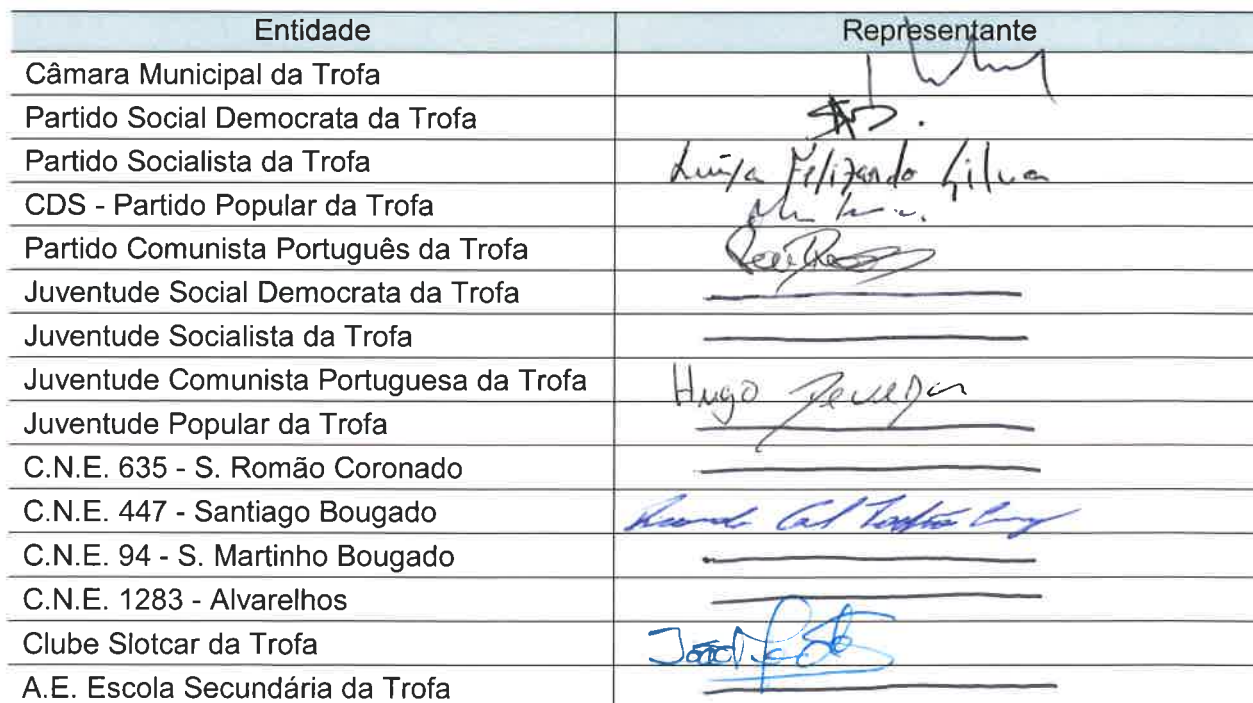 Entidade Representante
Câmara Municipal da Trofa
Partido Social Democrata da Trofa
Partido Socialista da Trofa Luísa Felizardo Silva
CDS - Partido Popular da Trofa
Partido Comunista Português da Trofa
Juventude Social Democrata da Trofa
Juventude Socialista da Trofa
Juventude Comunista Portuguesa da Trofa Hugo
Juventude Popular da Trofa
C.N.E. 635 - S. Romão Coronado
C.N.E. 447 - Santiago Bougado
C.N.E. 94 - S. Martinho Bougado
C.N.E. 1283 - Alvarelhos
Clube Slotcar da Trofa João
A.E. Escola Secundária da Trofa